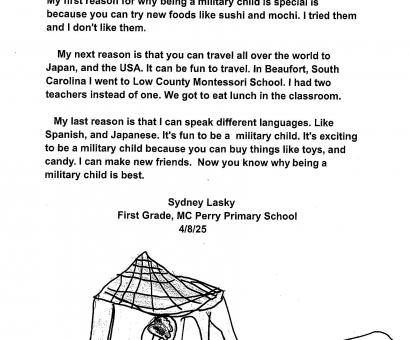 My first reason for why being a military child is special is
because you can try new foods like sushi and mochi. I tried them
and I don't like them.
My next reason is that you can travel all over the world to
Japan, and the USA. It can be fun to travel. In Beaufort, South
Carolina I went to Low County Montessori School. I had two
teachers instead of one. We got to eat lunch in the classroom.
My last reason is that I can speak different languages. Like
Spanish, and Japanese. It's fun to be a  military child. It's exciting
to be a military child because you can buy things like toys, and
candy. I can make new friends.  Now you know why being a
military child is best.
Sydney Lasky
First Grade, MC Perry Primary School
4/8/25